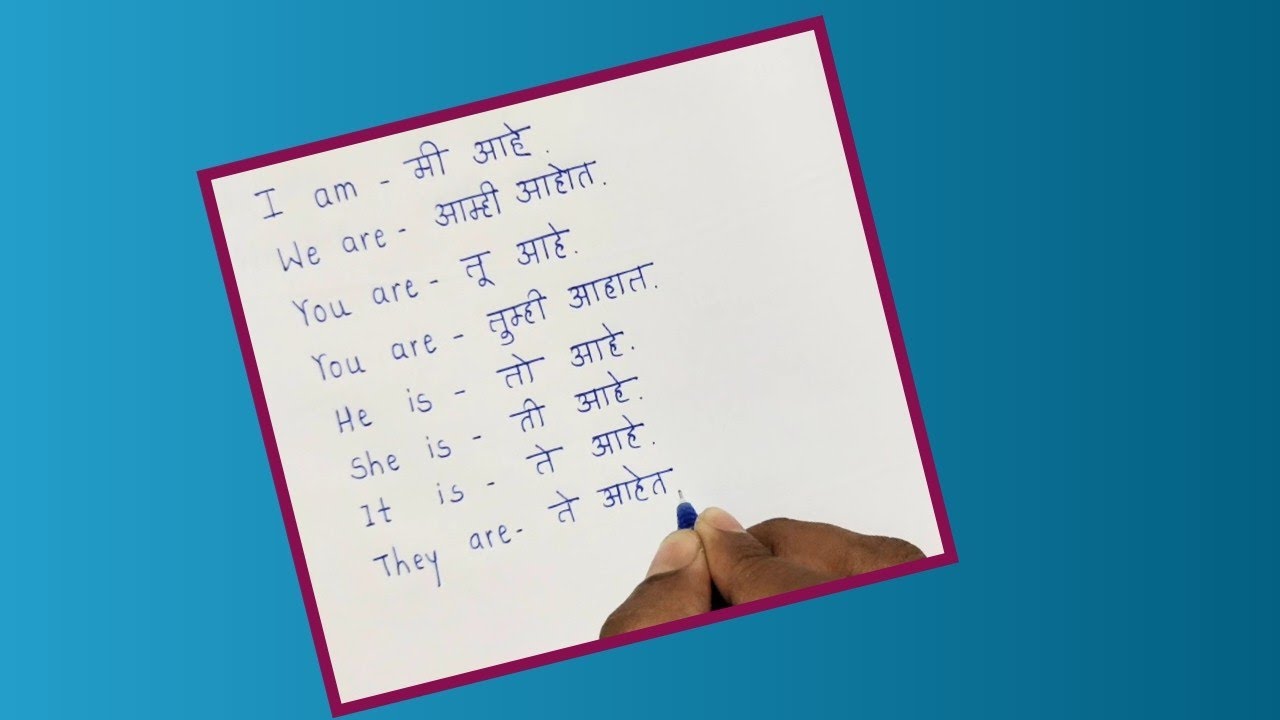 I am - मी आहे.
We are - आम्ही आहोत.
You are - तू आहे.
You are - तुम्ही आहात.
He is - तो आहे.
She is - ती आहे.
It is - ते आहे.
They are- ते आहेत.